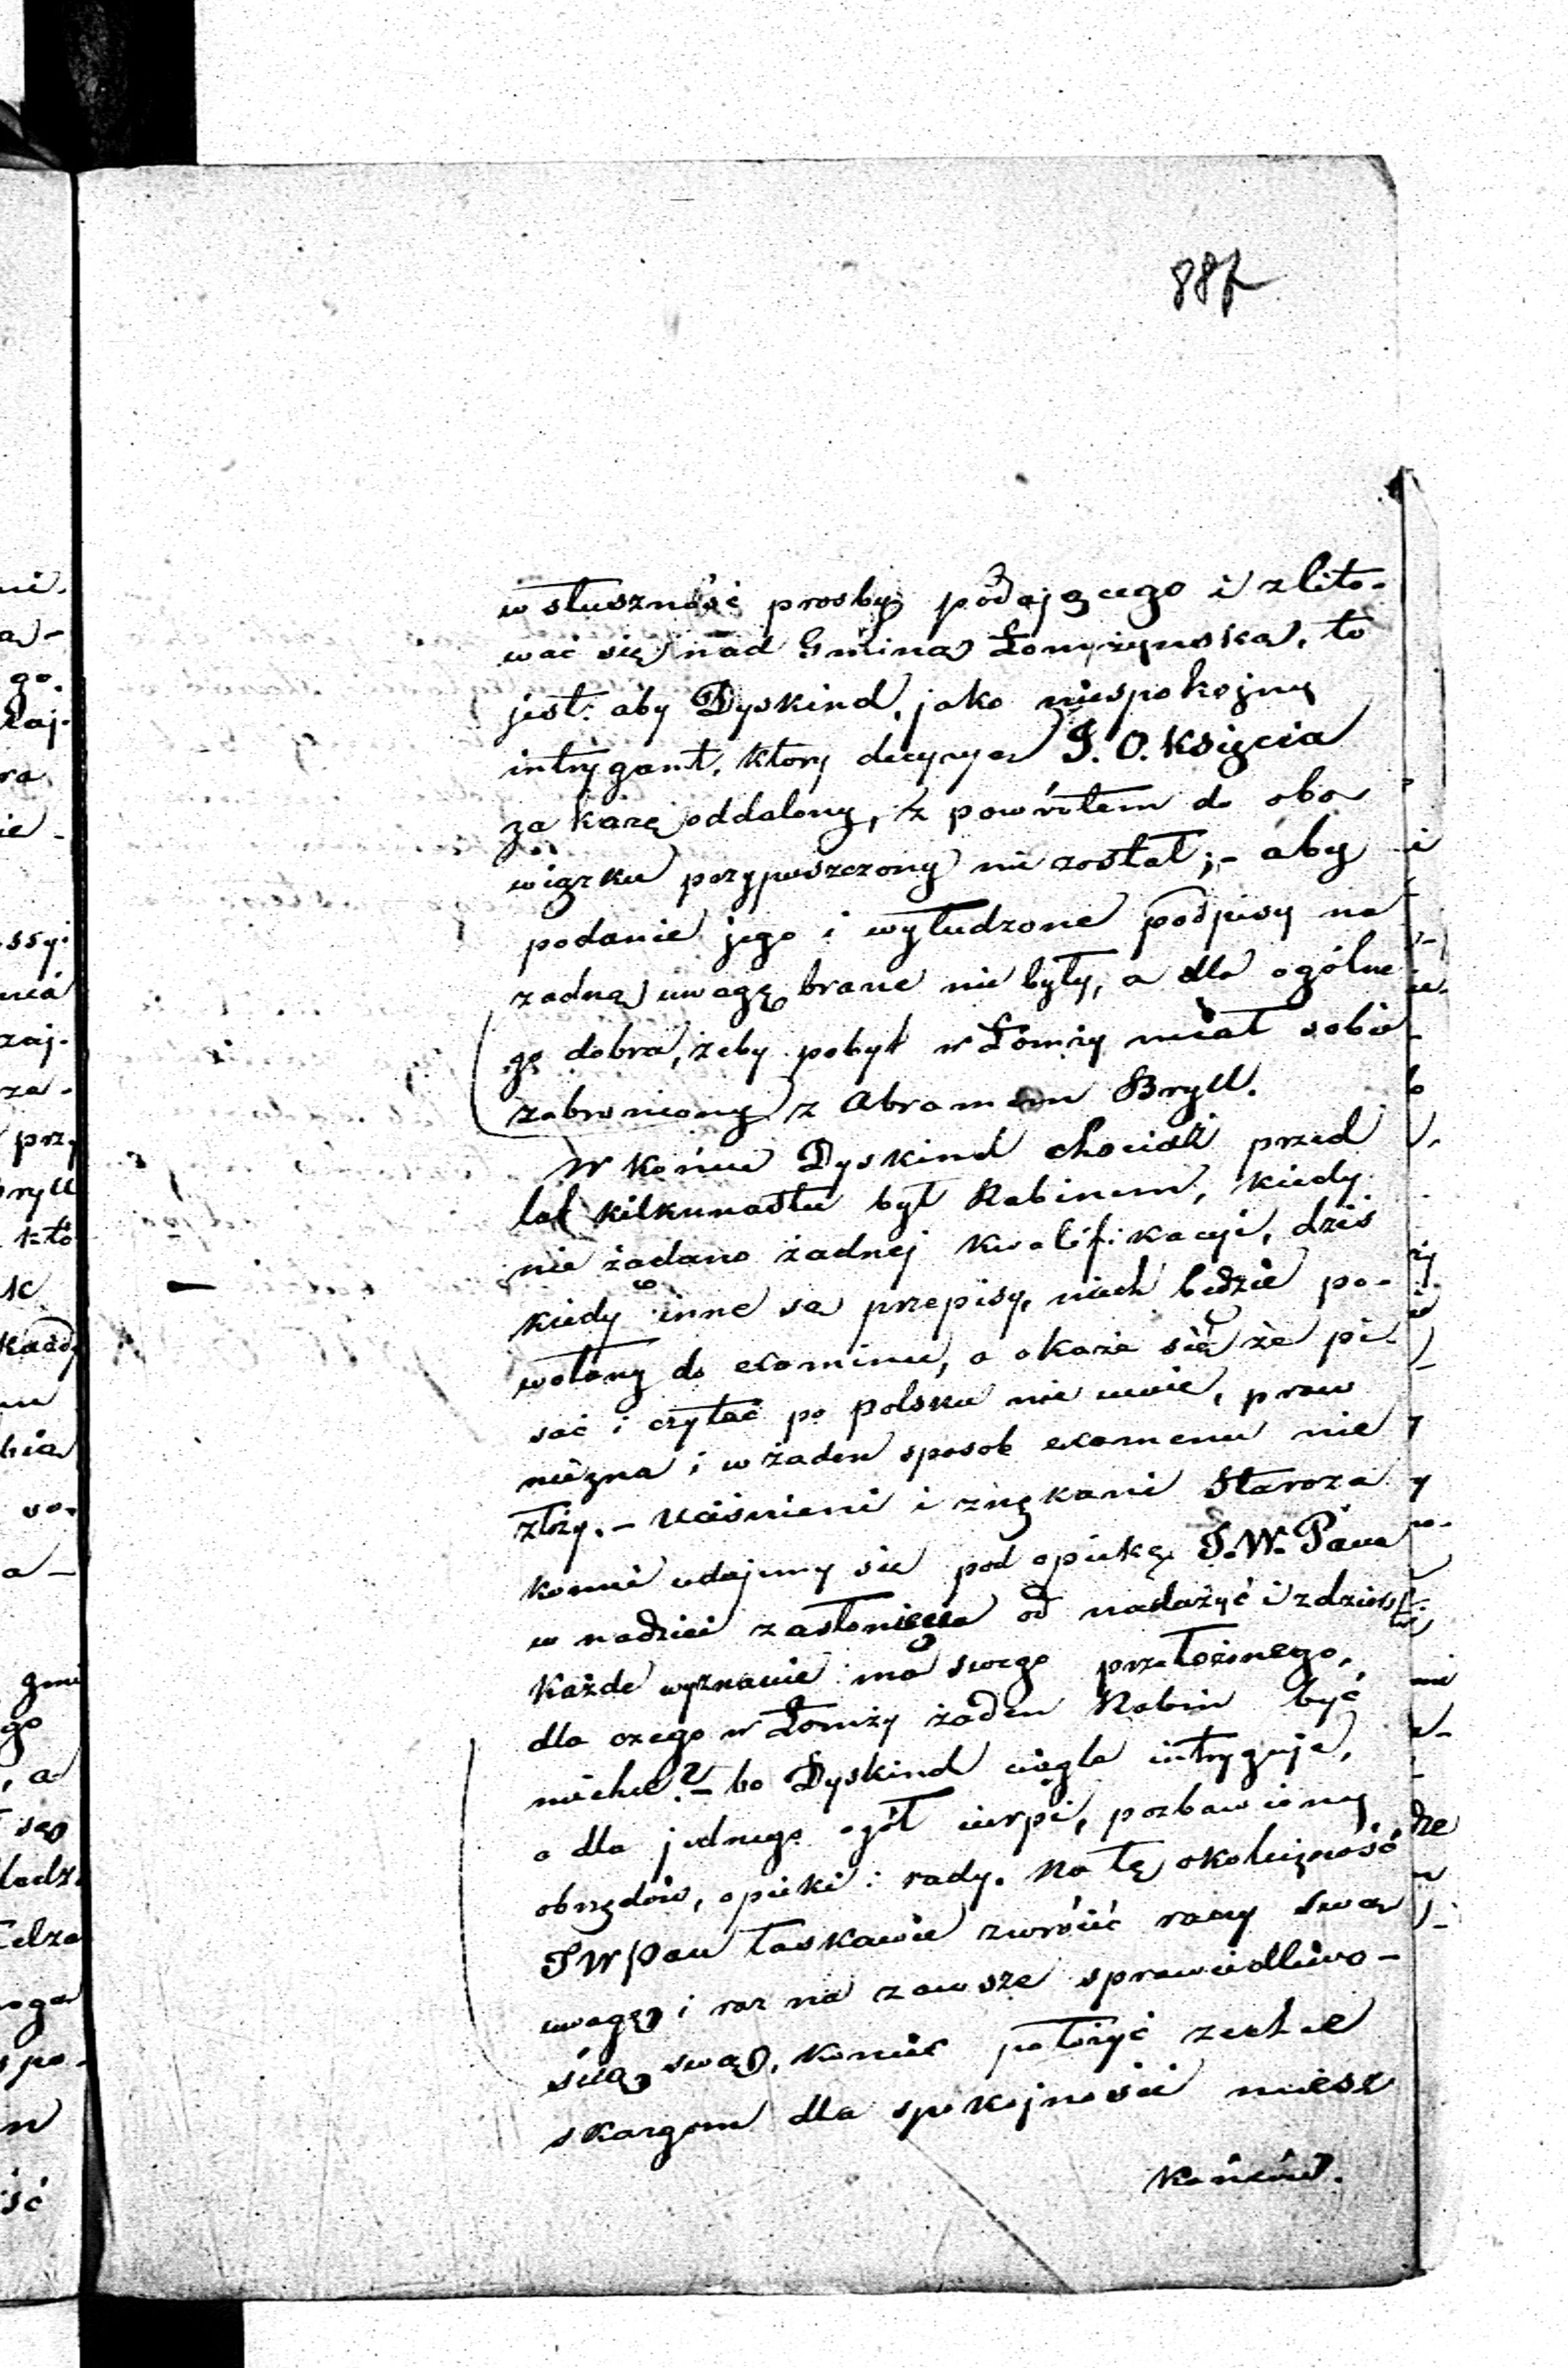 887
w słuszność prosby podającego i zlito-
wać się nad Gminą Łomżyńską, to
jest: aby Dyskind, jako niespokojny
intrygant, ktory decyzyą J. O. Księcia
za karę oddalony, z powrotem do obo
wiązku przypuszczony nie został; - aby
podanie jego i wyłudzone podpisy na
zadną uwagę brane nie były, a dla ogólne
go dobra, żeby pobyt w Łomży miał sobie
zabroniony z Abramem Bryll.
W końcu Dyskind chociaż przed
lat kilkunastu był Rabinem, kiedy
nie żądano żadnej kwalifikacyi, dziś
kiedy inne są przepisy, niech będzie po-
wołany do examinu, a okaże się że pi-
sać i czytać po polsku nie umie, praw
nie zna i w żaden sposob examenu nie
złoży. - Uciśnieni i znękani Staroza
konni udajemy się pod opiekę J. W. Pana
w nadziei zasłonięcia od nadużyć i zdzierstw
Każde wyznanie ma swego przełożonego,
dla czego w Łomży żaden Rabin być
niechce? - bo Dyskind ciągle intryguje,
a dla jednego ogół cierpi, pozbawiony
obrzędów, opieki i rady. Na tę okoliczność
JW Pan łaskawie zwrócić raczy swą
uwagę, i raz na zawsze sprawiedliwo-
ścią swą, koniec położyć zechce
skargom dla spokojności miesz
kańców.